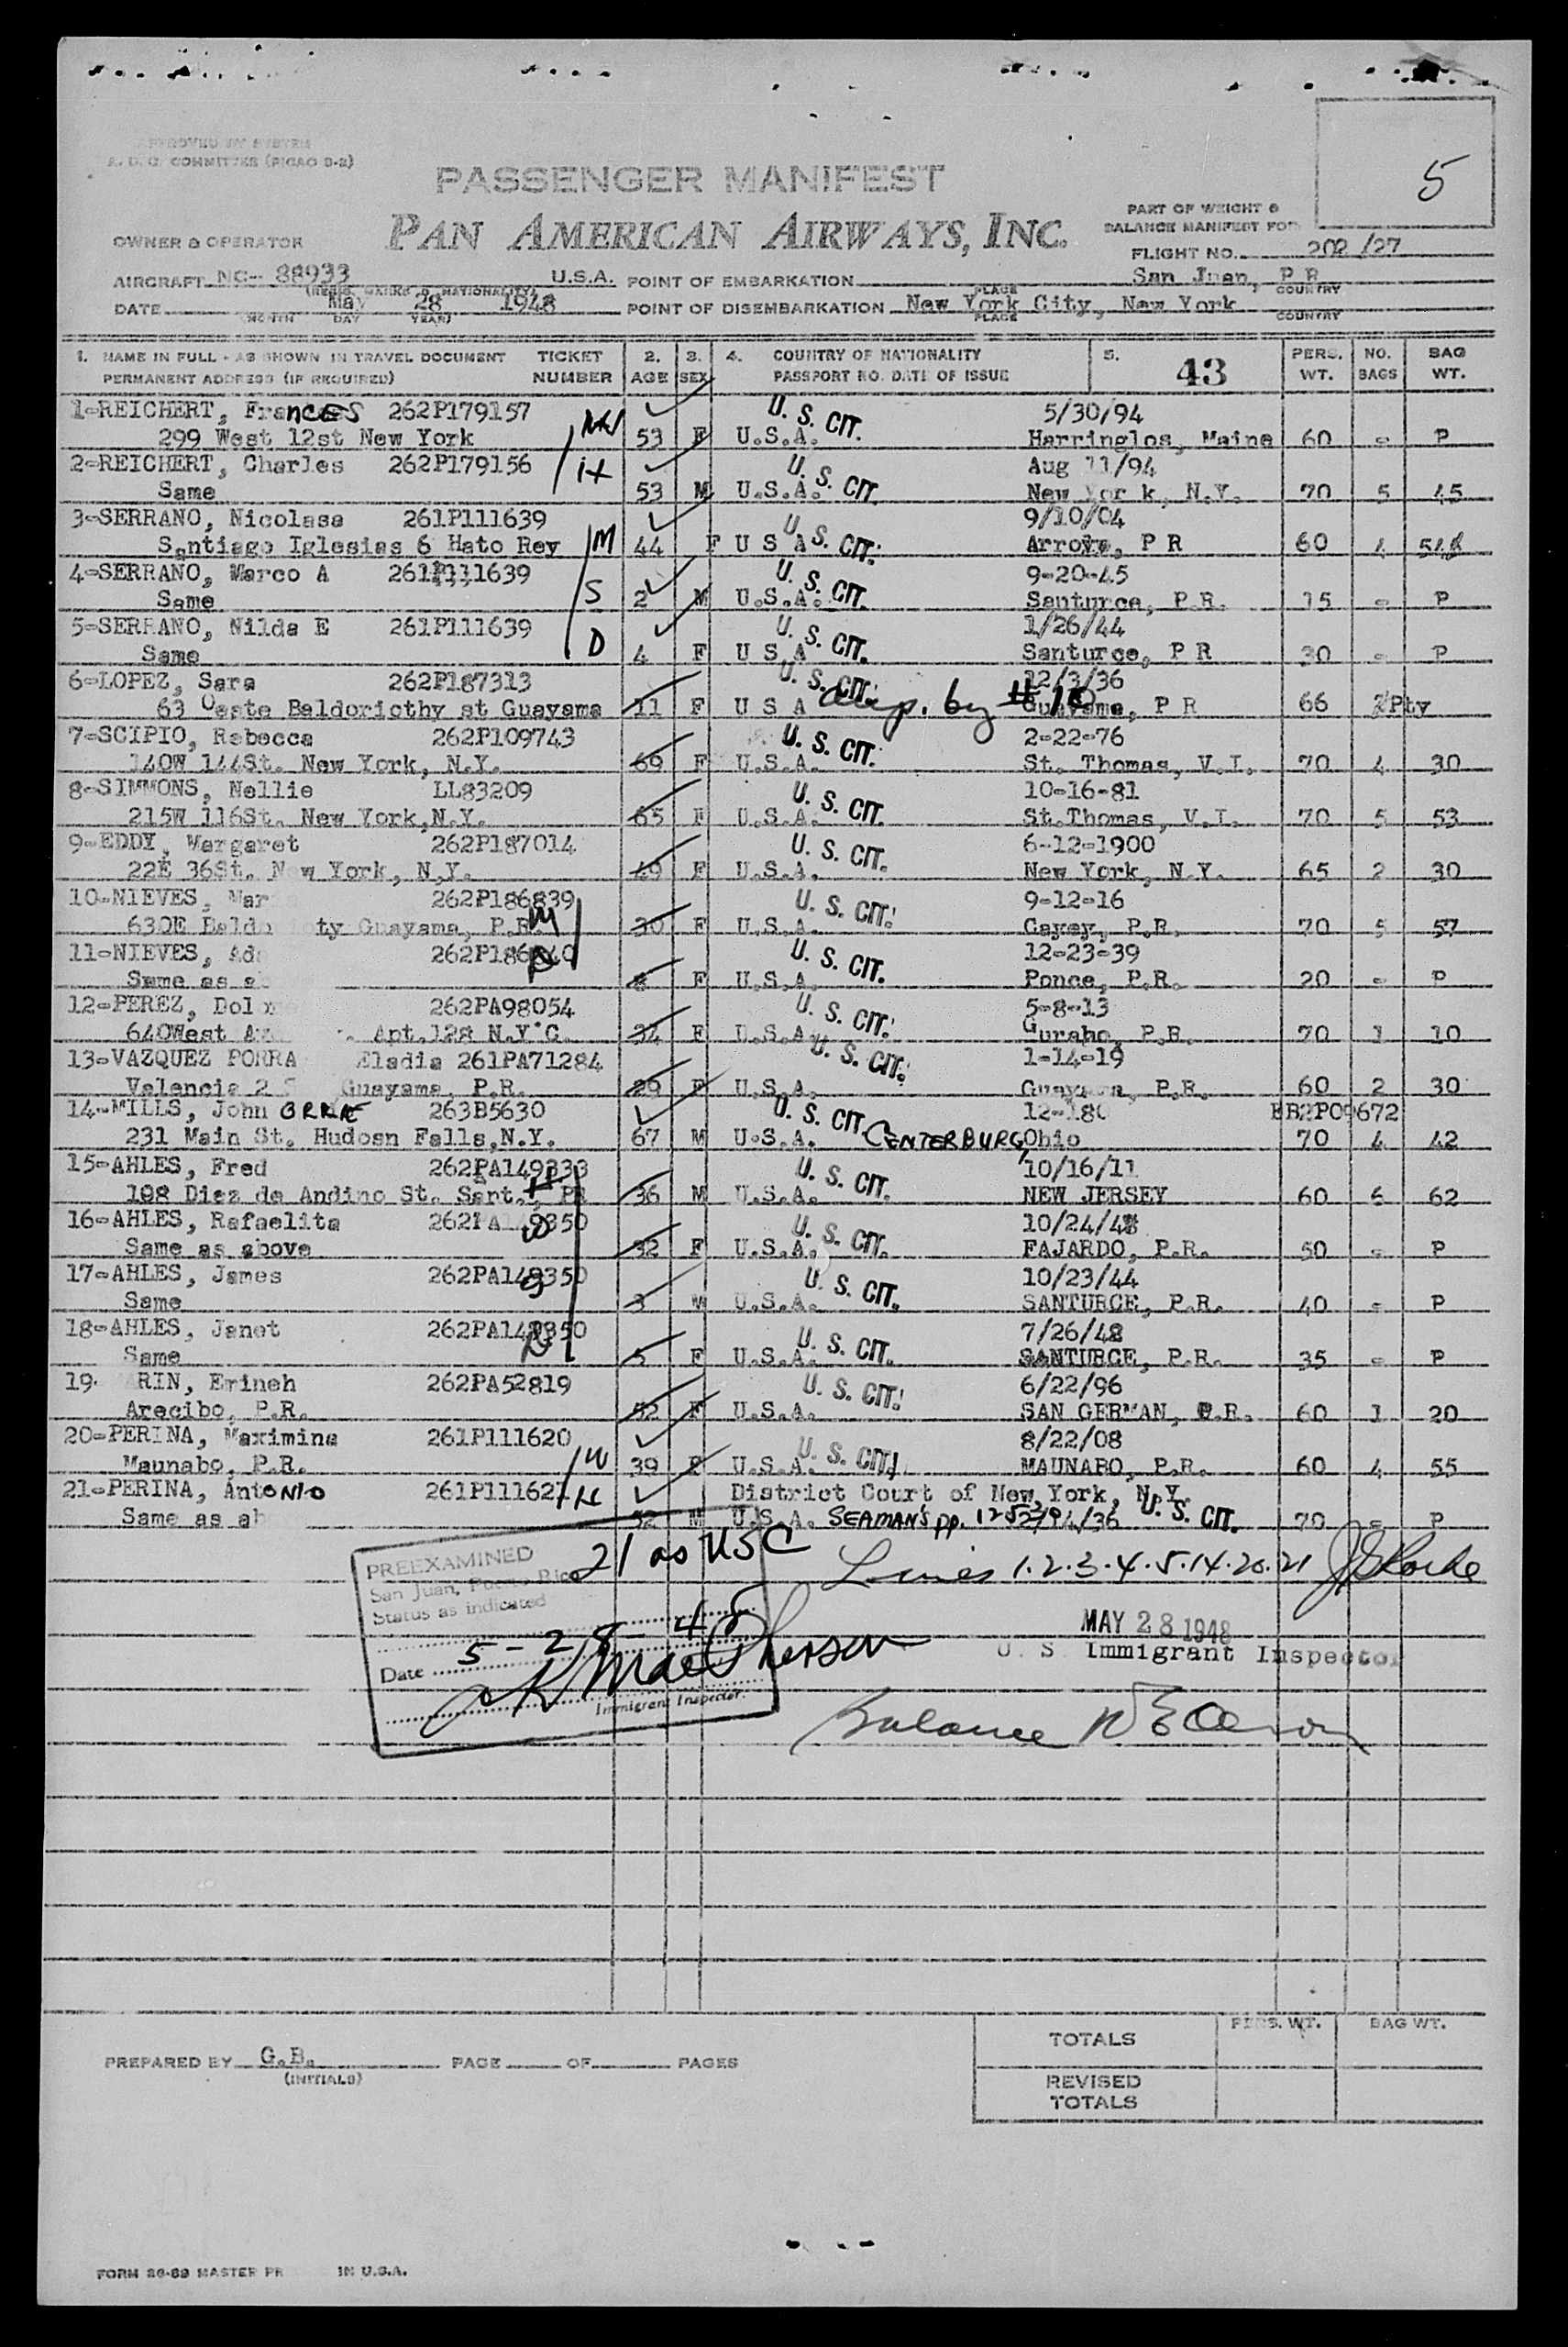 APPROVED BY SYSTEM
A. D. C. COMMITTEE (PICAO 9-2)
5
PASSENGER MANIFEST
PAN AMERICAN AIRWAYS, INC.
PART OF WEIGHT &
BALANCE MANIFEST FOR
OWNER & OPERATOR
FLIGHT NO. 202/27
AIRCRAFT NC-- 88933 U.S.A. POINT OF EMBARKATION San Juan, P.R.
(REGIS. MARKS & NATIONALITY) PLACE COUNTRY
DATE May 28 1948 POINT OF DISEMBARKATION New York City, New York
MONTH DAY YEAR) PLACE COUNTRY
1. NAME IN FULL - AS SHOWN IN TRAVEL DOCUMENT TICKET 2. 3. 4. COUNTRY OF NATIONALITY 5. 43 PERS. NO. BAG
PERMANENT ADDRESS (IF REQUIRED) NUMBER AGE SEX PASSPORT NO. DATE OF ISSUE WT. BAGS WT.
1-REICHERT, FraNCES 262P179157 U. S. CIT. 5/30/94
299 West 12st New York 53 F U.S.A. Harringlos, Maine 60 - P
2-REICHERT, Charles 262P179156 U. S. CIT. Aug 11/94
Same 53 M U.S.A. New York, N.Y. 70 5 45
3-SERRANO, Nicolasa 261P111639 U. S. CIT. 9/10/04
Santiago Iglesias 6 Hato Rey M 44 F U S A Arroyo, P R 60 4
4-SERRANO, Marco A 261P111639 U. S. CIT. 9-20-45
Same S 2 M U.S.A. Santurce, P.R. 15 - P
5-SERRANO, Nilda E 261P111639 U. S. CIT. 1/26/44
Same D 4 F U S A Santurce, P R 30 - P
6-LOPEZ, Sara 262P187313 U. S. CIT. 12/3/36
63 Oeste Baldoricthy st Guayama 11 F U S A by # 10 Guayama, P R 66 Pty
7-SCIPIO, Rebecca 262P109743 U. S. CIT. 2-22-76
140W 144St. New York, N.Y. 69 F U.S.A. St. Thomas, V.I. 70 4 30
8-SIMMONS, Nellie LL83209 U. S. CIT. 10-16-81
215W 116St. New York,N.Y. 65 F U.S.A. St.Thomas, V.I. 70 5 53
9-EDDY, Margaret 262P187014 U. S. CIT. 6-12-1900
22E 36St. N w York, N.Y. 49 F U.S.A. New York, N.Y. 65 2 30
10-NIEVES, Mar 262P186839 U. S. CIT. 9-12-16
63OE Baldo ty Guayama, P.R. M 30 F U.S.A. Cayey, P.R. 70 5 57
11-NIEVES, Ad 262P186 40 U. S. CIT. 12-23-39
Same as ab D 8 F U.S.A. Ponce, P.R. 20 - P
12-PEREZ, Dol 262PA98054 U. S. CIT. 5-8-13
640West Apt.128 N.Y.C. 34 F U.S.A. Gurabo, P.R. 70 1 10
13-VAZQUEZ PORRA Eladia 261PA71284 U. S. CIT. 1-14-19
Valencia 2 Guayama, P.R. 29 F U.S.A. Guayama, P.R. 60 2 30
14-MILLS, John ORRIE 263B5630 U. S. CIT. 12-180
231 Main St. Hudosn Falls,N.Y. 67 M U.S.A. CENTERBURG, Ohio 70 4 42
15-AHLES, Fred 262PA149333 U. S. CIT. 10/16/11
198 Diez de Andino St. Sant., PR H 36 M U.S.A. NEW JERSEY 60 6 62
16-AHLES, Rafaelita U. S. CIT. 10/24/
Same as above W 32 F U.S.A. FAJARDO, P.R. 50 - P
17-AHLES, James 262PA149350 U. S. CIT. 10/23/44
Same S 3 M U.S.A. SANTURCE, P.R. 40 - P
18-AHLES, Janet 262PA149350 U. S. CIT. 7/26/42
Same D 5 F U.S.A. SANTURCE, P.R. 35 - P
19- RIN, Erineh 262PA52819 U. S. CIT. 6/22/96
Arecibo, P.R. 52 F U.S.A. SAN GERMAN, P.R. 60 1 20
20-PERINA, Maximina 261P111620 U. S. CIT. 8/22/08
Maunabo, P.R. W 39 F U.S.A. MAUNABO, P.R. 60 4 55
21-PERINA, AntONIO 261P111621 H District Court of New York, N.Y.
Same as ab 52 M U.S.A. SEAMAN'S pp. U. S. CIT. 70 - P
PREEXAMINED 21 as USC
San Juan, Puerto Rico
Status as indicated
Lines 1.2.3.4.5.14.20.21
MAY 28 1948
Date 5-28-48
U. S. Immigrant Inspector
K MacPherson
Immigrant Inspector.
Balance
TOTALS PERS. WT. BAG WT.
PREPARED BY G.B. PAGE OF PAGES
(INITIALS)
REVISED
TOTALS
FORM 26-89 MASTER PR IN U.S.A.